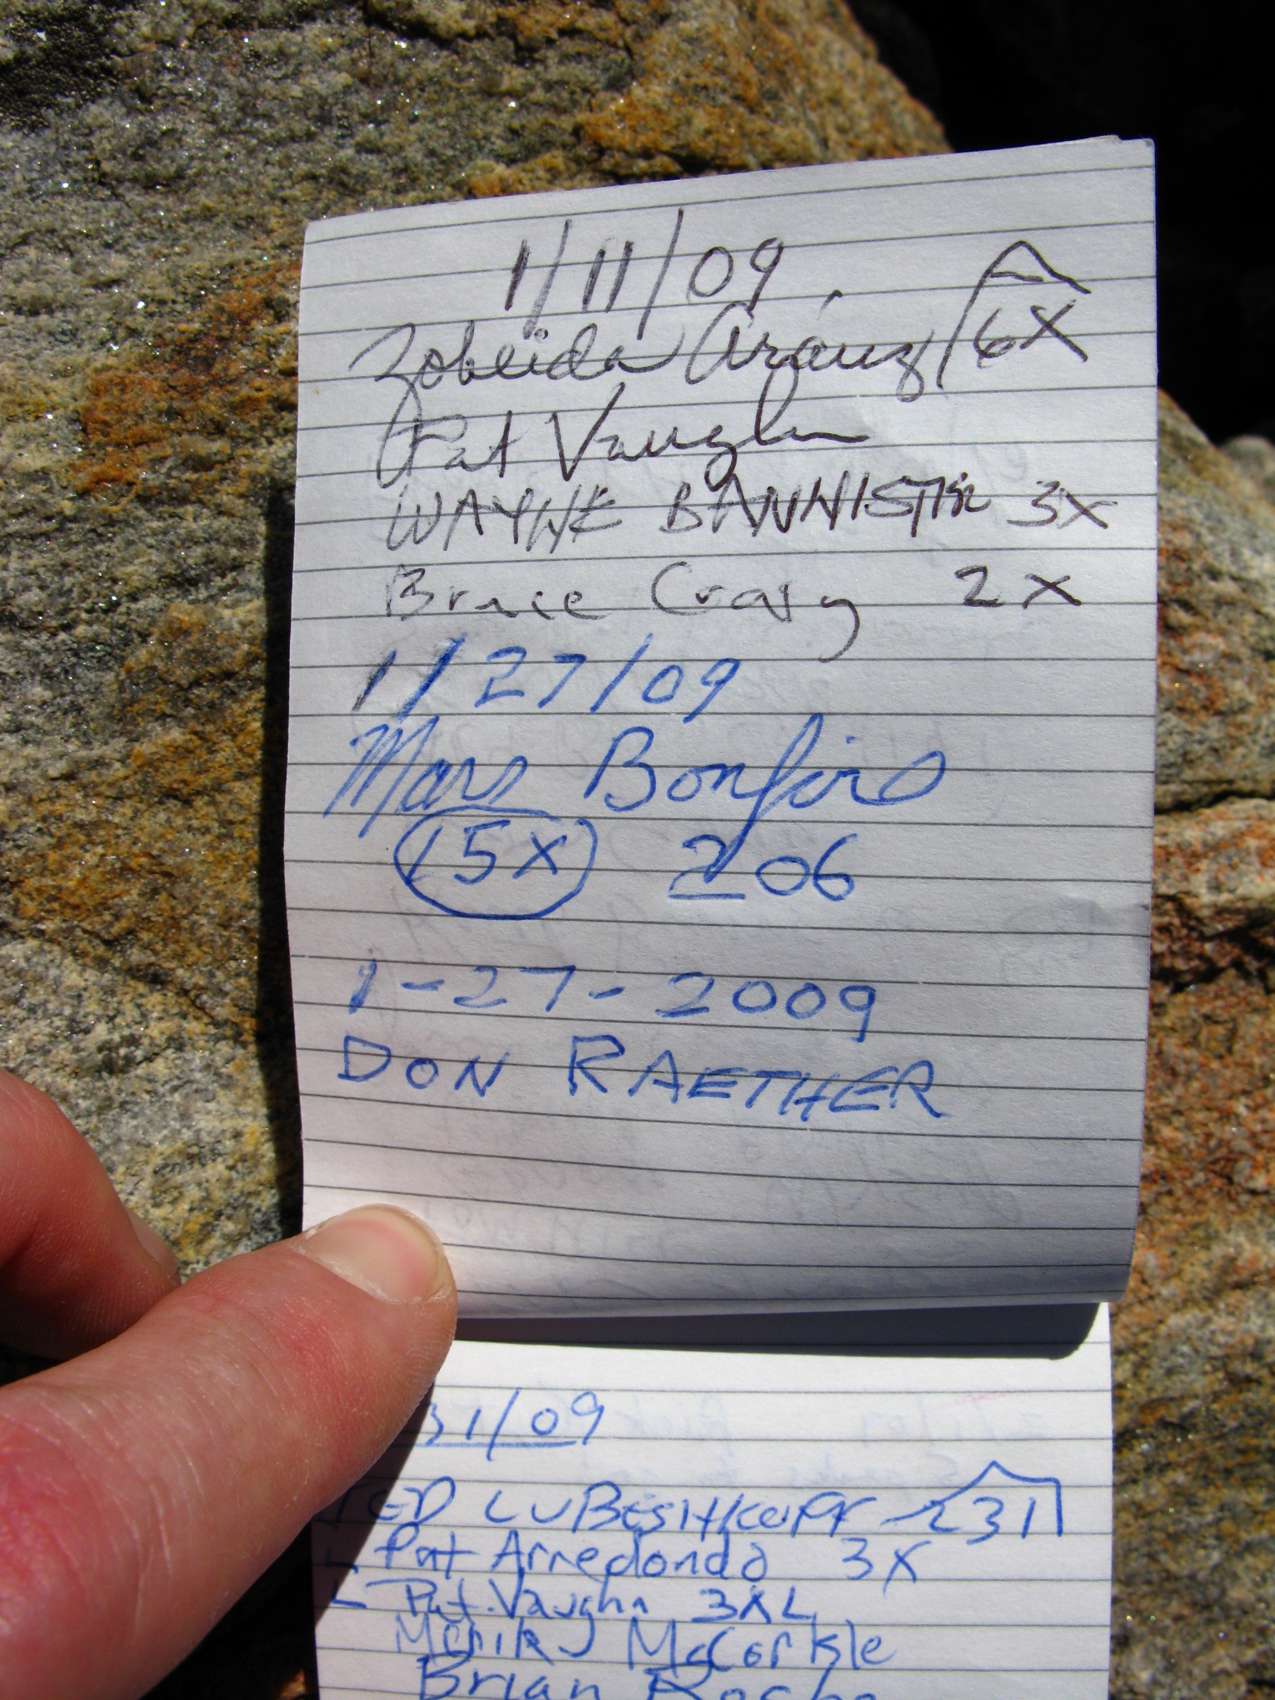 1/11/09
Zobeida Aráuz 6X
Pat Vaughn
WAYNE BANNISTER 3X
Bruce Craig 2X
1/27/09
Mars Bonfire
15X 206
1-27-2009
DON RAETHER
31/09
TED 231
Pat Arredondo 3X
Pat Vaughn 3XL
McCorkle
Brian